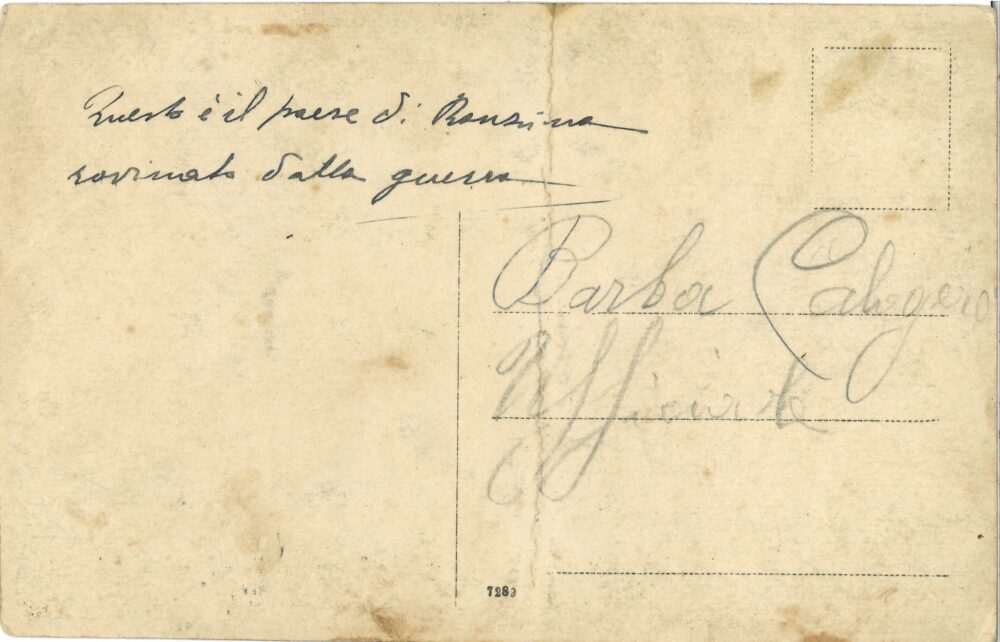 Questo è il paese di Ranzina
rovinato dalla guerra
Barba Calogero
Ufficiale
7289